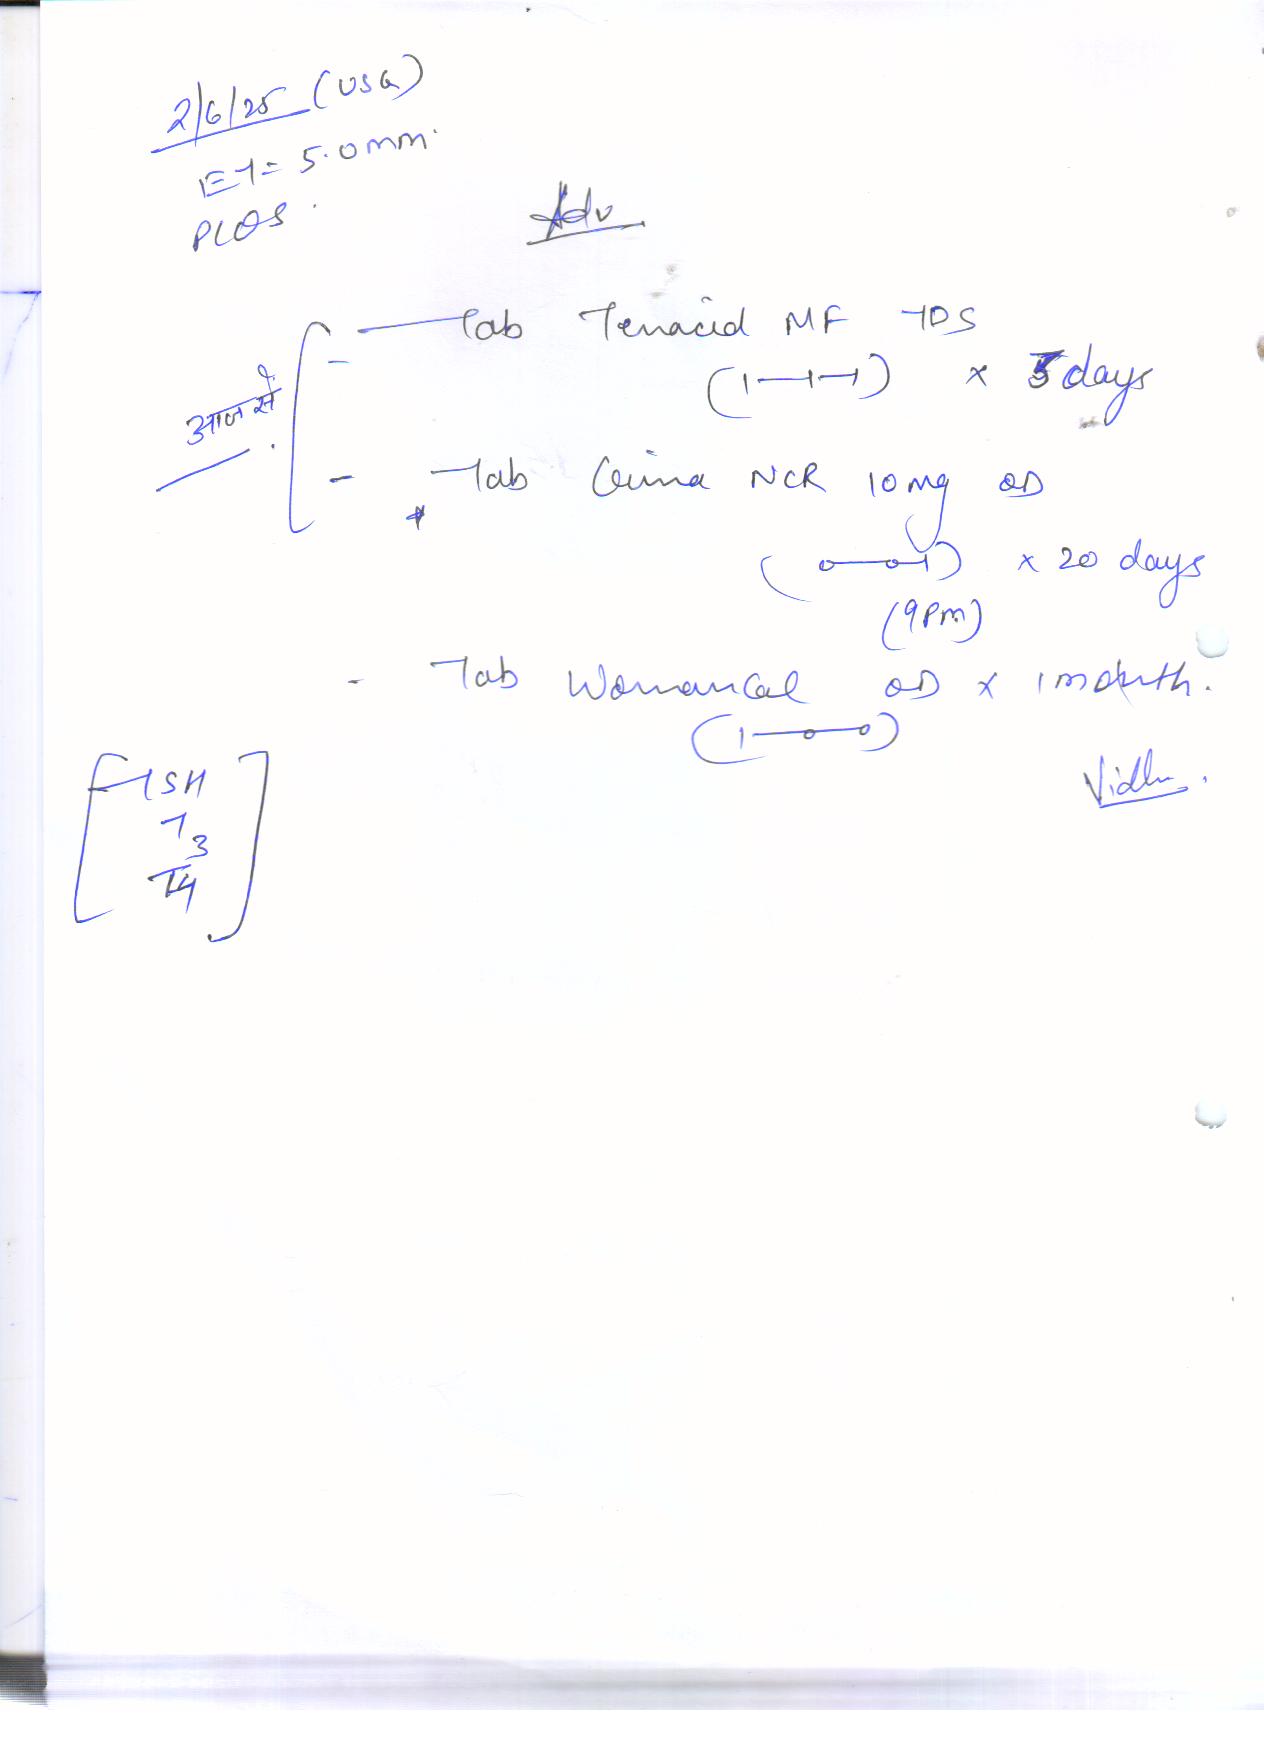 2/6/25 (USG)
ET = 5.0mm.
PCOS.
Adv
आज से
- Tab Tenacid MF TDS
(1—1—1) x 5 days
- Tab NCR 10 mg OD
(0—0—1) x 20 days
(9 Pm)
- Tab Womancal OD x 1 month.
(1—0—0)
TSH
T3
T4